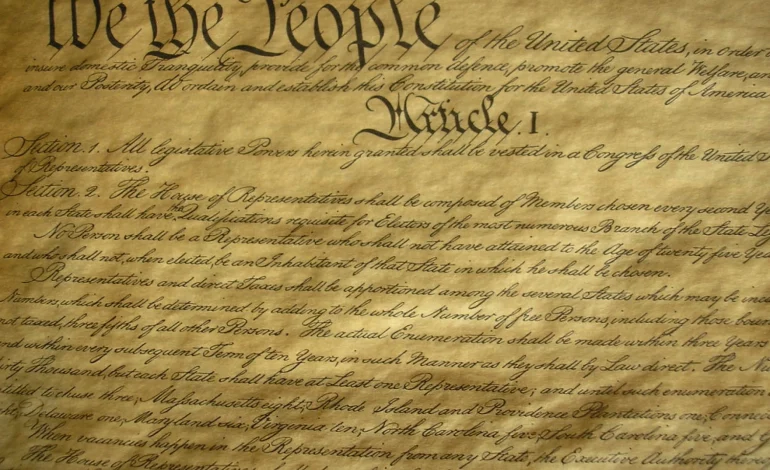 We the People of the United States, in Order
insure domestic Tranquility, provide for the common defence, promote the general Welfare, an
and our Posterity, do ordain and establish this Constitution for the United States of America
Article. I.
Section. 1. All legislative Powers herein granted shall be vested in a Congress of the United
of Representatives.
Section. 2. The House of Representatives shall be composed of Members chosen every second Ye
in each State shall have the Qualifications requisite for Electors of the most numerous Branch of the State Leg
No Person shall be a Representative who shall not have attained to the Age of twenty five Yea
and who shall not, when elected, be an Inhabitant of that State in which he shall be chosen.
Representatives and direct Taxes shall be apportioned among the several States which may be inc
Numbers, which shall be determined by adding to the whole Number of free Persons, including those boun
not taxed, three fifths of all other Persons. The actual Enumeration shall be made within three Years
and within every subsequent Term of ten Years, in such Manner as they shall by Law direct. The Nu
hirty Thousand, but each State shall have at Least one Representative; and until such enumeration
titled to chuse three, Massachusetts eight, Rhode Island and Providence Plantations one, Connec
ight, Delaware one, Maryland six, Virginia ten, North Carolina five, South Carolina five, and G
When vacancies happen in the Representation from any State, the Executive Authority thereo
The House of Representatives